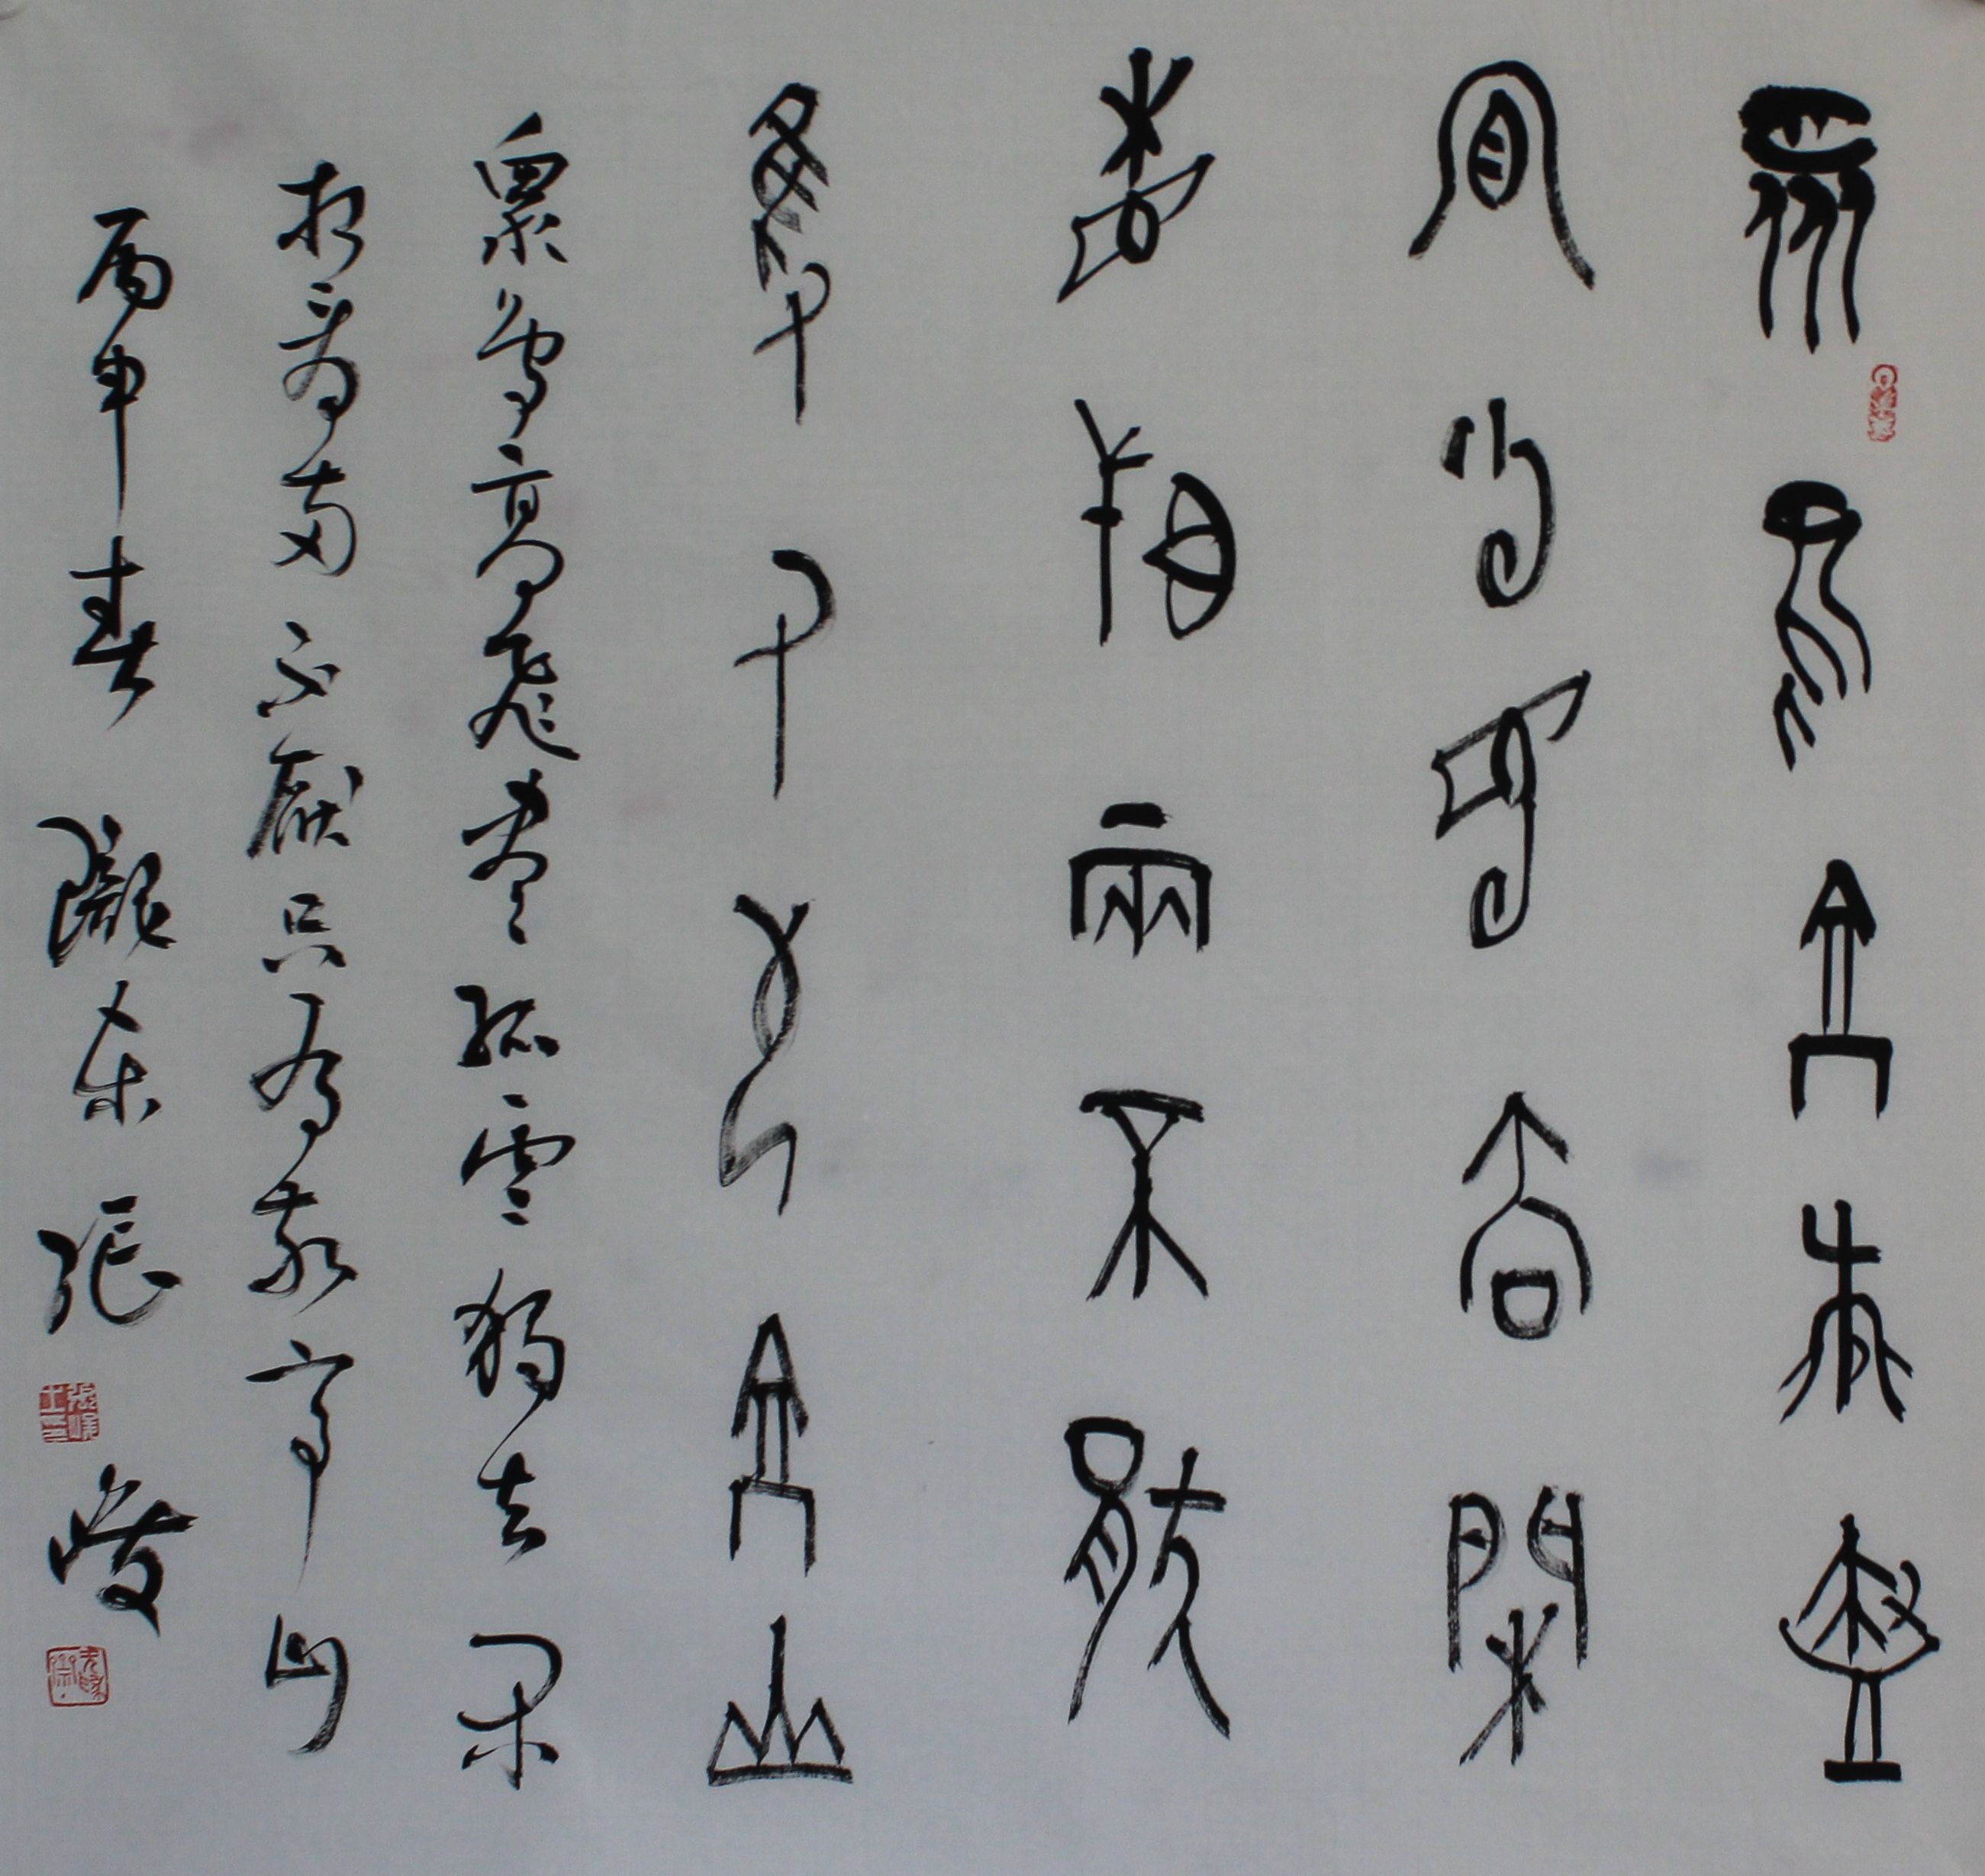 眾鳥高飛盡
孤雲獨去閑
相看兩不厭
只有敬亭山
眾鳥高飛盡孤雲獨去閑
相看兩不厭只有敬亭山
丙申春 隴東 張